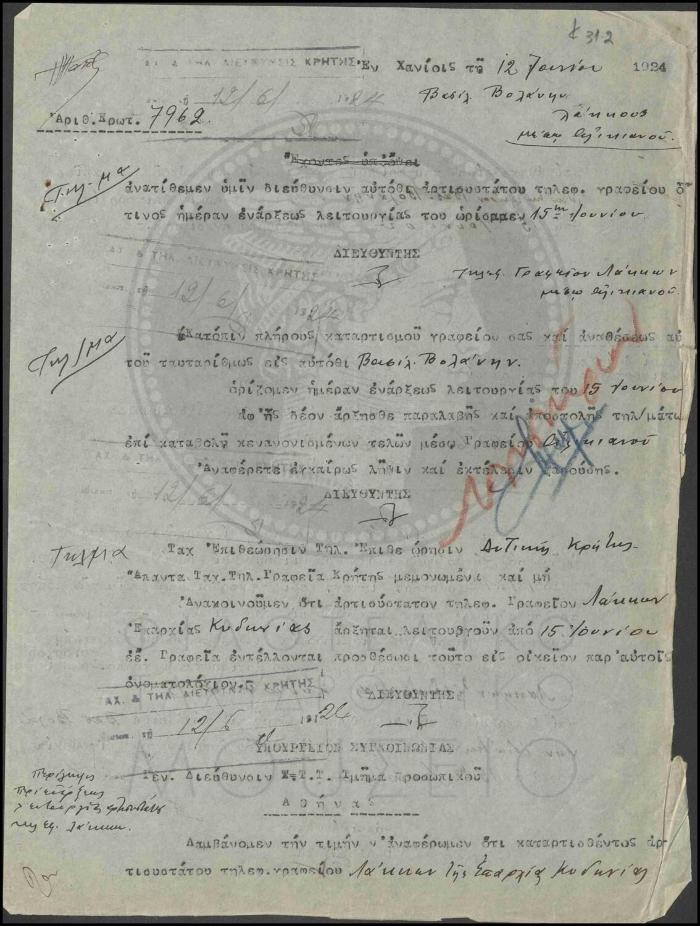 312
ΑΧ. & ΤΗΛ ΔΙΕΥΘΥΝΣΙΣ ΚΡΗΤΗΣ Ἐν Χανίοις τῇ 12 Ἰουνίου 1924
12/6/1924
Βασιλ. Βολάνην
Ἀριθ. Πρωτ. 7962
Λάκκους
μέσῳ Ἀλικιανοῦ.
Ἔχοντες ὑπ' ὄψει
ἀνατίθεμεν ὑμῖν διεύθυνσιν αὐτόθι ἀρτιουστάτου τηλεφ. γραφείου οὗ
τινος ἡμέραν ἐνάρξεως λειτουργίας του ὡρίσαμεν 15ην Ἰουνίου.
ΔΙΕΥΘΥΝΤΗΣ
ΑΧ. & ΤΗΛ. ΔΙΕΥΘΥΝΣΙΣ ΚΡΗΤΗΣ
Τηλεφ. Γραφεῖον Λάκκων
12/6/1924
μέσῳ Ἀλικιανοῦ.
Κατόπιν πλήρους καταρτισμοῦ γραφείου σας καὶ ἀναθέσεως αὐ
τοῦ ταυταρίθμως εἰς αὐτόθι Βασιλ. Βολάνην.
ὁρίζομεν ἡμέραν ἐνάρξεως λειτουργίας του 15 Ἰουνίου
ἀφ' ἧς δέον ἄρξησθε παραλαβῆς καὶ ἀποστολῆς τηλ/μάτω
ἐπὶ καταβολῇ κενανονισμένων τελῶν μέσῳ Γραφείου Ἀλικιανοῦ
Ἀναφέρετε ἐγκαίρως λῆψιν καὶ ἐκτέλεσιν παρούσης.
12/6/24
ΔΙΕΥΘΥΝΤΗΣ
Τηλ/μα
Ταχ Ἐπιθεώρησιν Τηλ. Ἐπιθεώρησιν Δυτικῆς Κρήτης
Ἅπαντα Ταχ. Τηλ. Γραφεῖα Κρήτης μεμονωμένα καὶ μή
Ἀνακοινοῦμεν ὅτι ἀρτιούστατον τηλεφ. Γραφεῖον Λάκκων
Ἐπαρχίας Κυδωνίας ἄρξηται λειτουργοῦν ἀπό 15 Ἰουνίου
ἐέ. Γραφεῖα ἐντέλλονται προσθέσωσι τοῦτο εἰς οἰκεῖον παρ' αὐτοῖς
ὀνοματολόγιον.
ΑΧ. & ΤΗΛ ΔΙΕΥΘΥΝΣΙΣ ΚΡΗΤΗΣ
ΔΙΕΥΘΥΝΤΗΣ
12/6 1924
ΥΠΟΥΡΓΕΙΟΝ ΣΥΓΚΟΙΝΩΝΙΑΣ
Γεν. Διεύθυνσιν Τ.Τ.Τ. Τμῆμα Προσωπικοῦ
Ἀθήνας
Λαμβάνομεν τὴν τιμήν ν' ἀναφέρωμεν ὅτι καταρτισθέντος ἀρ-
τιουστάτου τηλεφ. γραφείου Λάκκων τῆς Ἐπαρχίας Κυδωνίας